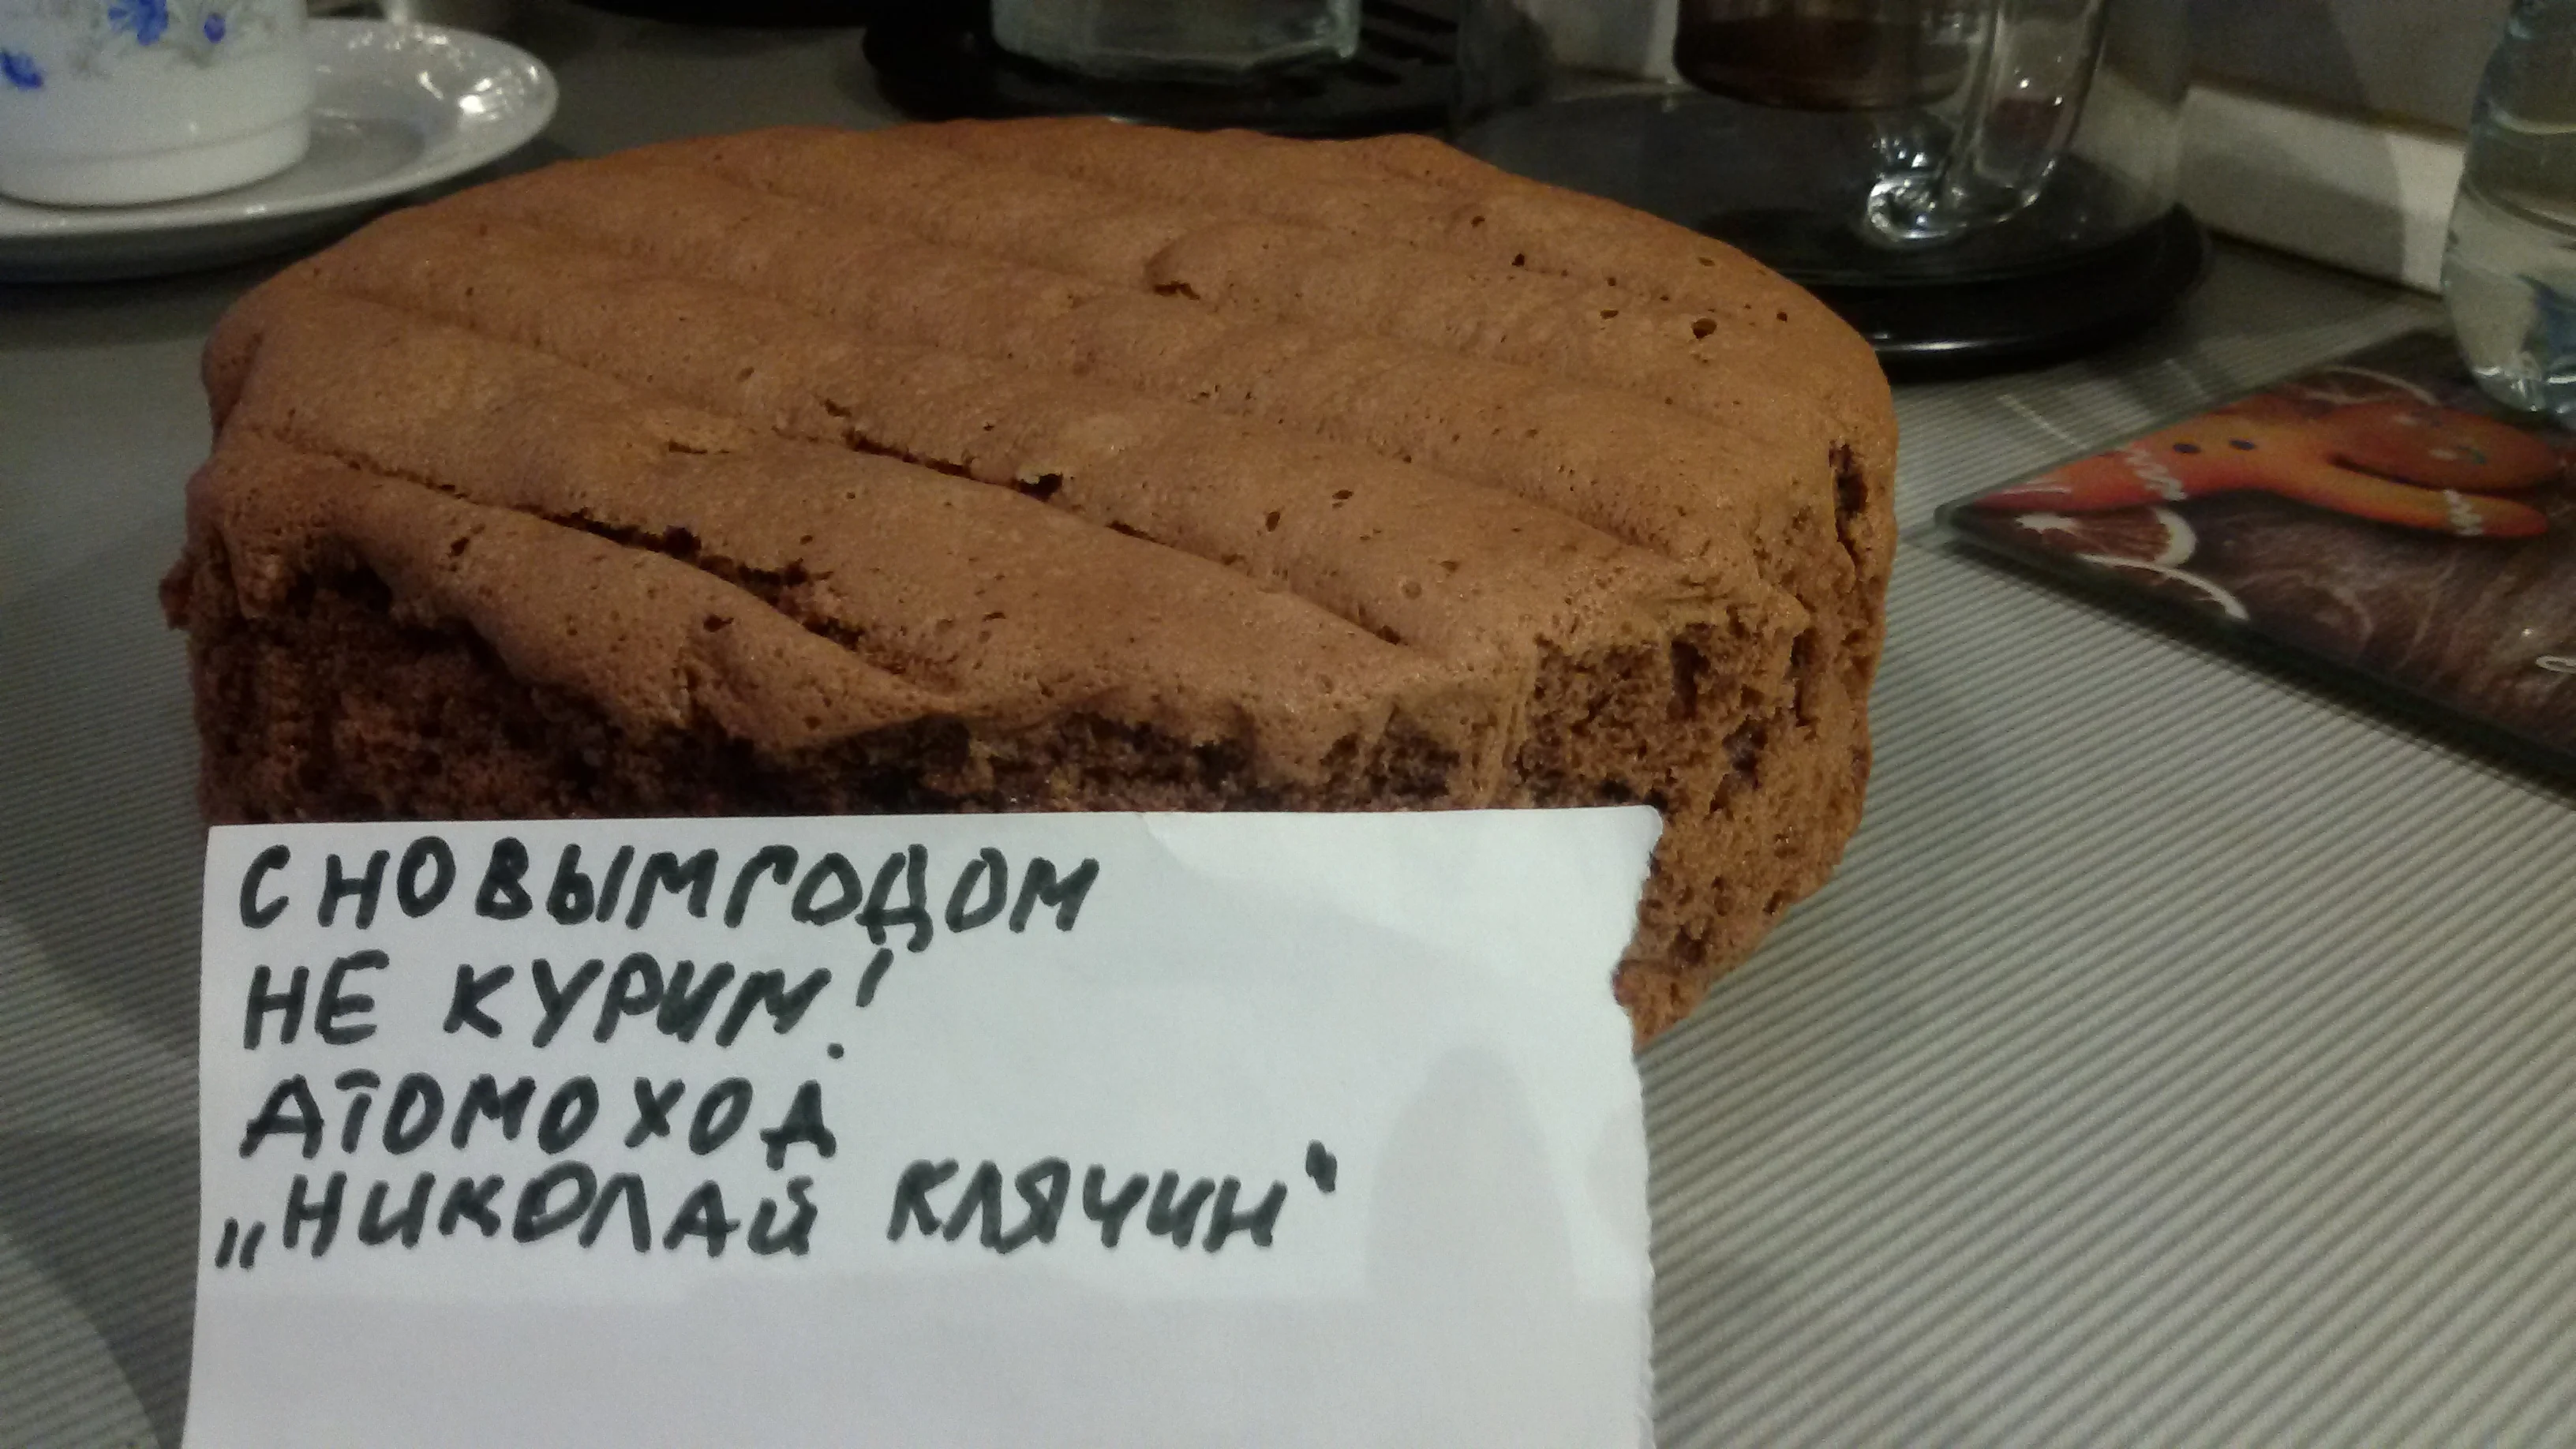 С НОВЫМ ГОДОМ
НЕ КУРИМ!
АТОМОХОД
„НИКОЛАЙ КЛЯЧИН“